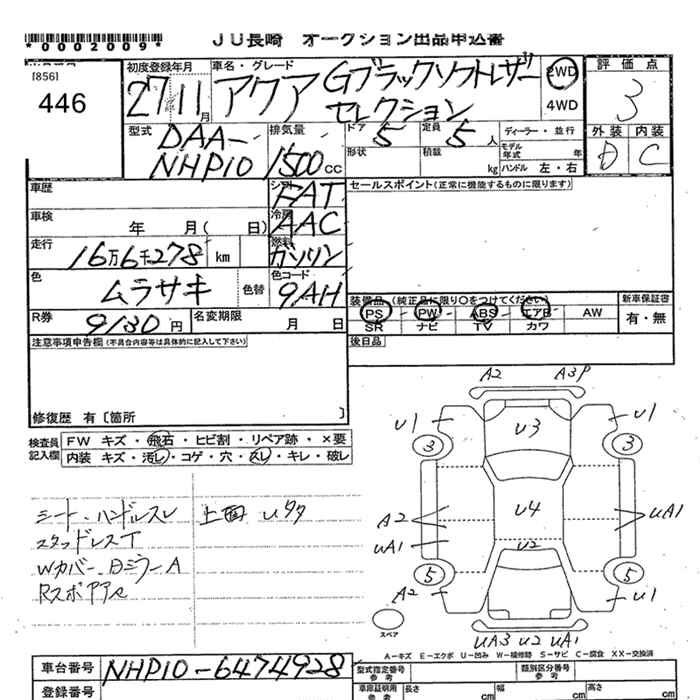 *0002009*
JU長崎 オークション出品申込書
[856]
446
初度登録年月
27年11月
車名・グレード
アクア Gブラックソフトレザー
セレクション
2WD
4WD
評価点
3
外装 内装
D C
型式
DAA-
NHP10
排気量
1500cc
ドア
5
定員
5人
形状
積載
kg
ディーラー・並行
モデル年式 年
ハンドル 左・右
車歴
シフト
FAT
セールスポイント(正常に機能するものに限ります)
車検
年 月( 日)
冷房
AAC
走行
16万6千278 km
燃料
ガソリン
色
ムラサキ
色替
色コード
9AH
R券
9130円
名変期限
月 日
装備品(純正品に限り○をつけてください)
PS PW ABS エアB AW
SR ナビ TV カワ
新車保証書
有・無
後日品
注意事項申告欄(不具合内容等は具体的に記入して下さい)
修復歴 有〔箇所 〕
検査員
記入欄
FW キズ・飛石・ヒビ割・リペア跡・×要
内装 キズ・汚レ・コゲ・穴・スレ・キレ・破レ
シート・ハンドルスレ
スタッドレスT
Wカバー・日ミラーA
上面 U多々
A2 A3P
U1 U3 U1
3 3
A2 U4 UA1
UA1 U2
5 5
A2 U1
スペア
UA3 U2 UA1
A-キズ E-エクボ U-凹み W-補修跡 S-サビ C-腐食 XX-交換済
車台番号
NHP10-6474928
型式指定番号
参考
類別区分番号
参考
登録番号
車庫証明用
参考
長さ cm
幅 cm
高さ cm